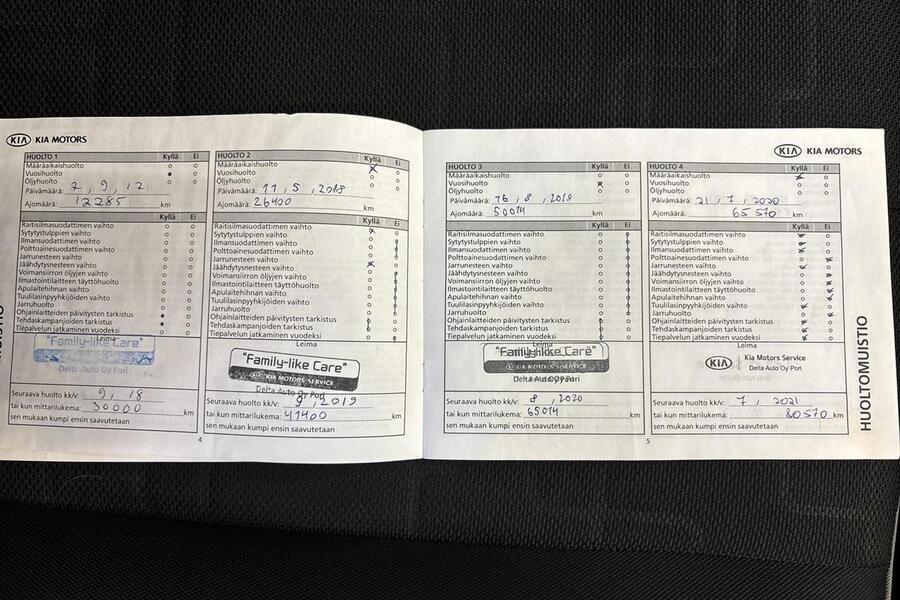 KIA KIA MOTORS
HUOLTO 1 Kyllä Ei
Määräaikaishuolto
Vuosihuolto
Öljyhuolto
Päivämäärä: 7, 9, 17
Ajomäärä: 12285 km
Kyllä Ei
Raitisilmasuodattimen vaihto
Sytytystulppien vaihto
Ilmansuodattimen vaihto
Polttoainesuodattimen vaihto
Jarrunesteen vaihto
Jäähdytysnesteen vaihto
Voimansiirron öljyjen vaihto
Ilmastointilaitteen täyttöhuolto
Apulaitehihnan vaihto
Tuulilasinpyyhkijöiden vaihto
Jarruhuolto
Ohjainlaitteiden päivitysten tarkistus
Tehdaskampanjoiden tarkistus
Tiepalvelun jatkaminen vuodeksi
Leima
"Family-like Care"
Delta Auto Oy Pori
Seuraava huolto kk/v: 9, 18
tai kun mittarilukema: 30000 km
sen mukaan kumpi ensin saavutetaan
4
HUOLTO 2 Kyllä Ei
Määräaikaishuolto
Vuosihuolto
Öljyhuolto
Päivämäärä: 11, 5, 2018
Ajomäärä: 26400 km
Kyllä Ei
Raitisilmasuodattimen vaihto
Sytytystulppien vaihto
Ilmansuodattimen vaihto
Polttoainesuodattimen vaihto
Jarrunesteen vaihto
Jäähdytysnesteen vaihto
Voimansiirron öljyjen vaihto
Ilmastointilaitteen täyttöhuolto
Apulaitehihnan vaihto
Tuulilasinpyyhkijöiden vaihto
Jarruhuolto
Ohjainlaitteiden päivitysten tarkistus
Tehdaskampanjoiden tarkistus
Tiepalvelun jatkaminen vuodeksi
Leima
"Family-like Care"
KIA MOTORS SERVICE
Delta Auto Oy Pori
Seuraava huolto kk/v: 9, 2019
tai kun mittarilukema: 41400 km
sen mukaan kumpi ensin saavutetaan
KIA KIA MOTORS
HUOLTO 3 Kyllä Ei
Määräaikaishuolto
Vuosihuolto
Öljyhuolto
Päivämäärä: 16, 8, 2019
Ajomäärä: 50014 km
Kyllä Ei
Raitisilmasuodattimen vaihto
Sytytystulppien vaihto
Ilmansuodattimen vaihto
Polttoainesuodattimen vaihto
Jarrunesteen vaihto
Jäähdytysnesteen vaihto
Voimansiirron öljyjen vaihto
Ilmastointilaitteen täyttöhuolto
Apulaitehihnan vaihto
Tuulilasinpyyhkijöiden vaihto
Jarruhuolto
Ohjainlaitteiden päivitysten tarkistus
Tehdaskampanjoiden tarkistus
Tiepalvelun jatkaminen vuodeksi
Leima
"Family-like Care"
KIA MOTORS SERVICE
Delta Auto Oy Pori
Seuraava huolto kk/v: 8, 2020
tai kun mittarilukema: 65014 km
sen mukaan kumpi ensin saavutetaan
5
HUOLTO 4 Kyllä Ei
Määräaikaishuolto
Vuosihuolto
Öljyhuolto
Päivämäärä: 21, 7, 2020
Ajomäärä: 65 570 km
Kyllä Ei
Raitisilmasuodattimen vaihto
Sytytystulppien vaihto
Ilmansuodattimen vaihto
Polttoainesuodattimen vaihto
Jarrunesteen vaihto
Jäähdytysnesteen vaihto
Voimansiirron öljyjen vaihto
Ilmastointilaitteen täyttöhuolto
Apulaitehihnan vaihto
Tuulilasinpyyhkijöiden vaihto
Jarruhuolto
Ohjainlaitteiden päivitysten tarkistus
Tehdaskampanjoiden tarkistus
Tiepalvelun jatkaminen vuodeksi
Leima
KIA Kia Motors Service
Delta Auto Oy Pori
Seuraava huolto kk/v: 7, 2021
tai kun mittarilukema: 80570 km
sen mukaan kumpi ensin saavutetaan
HUOLTOMUISTIO